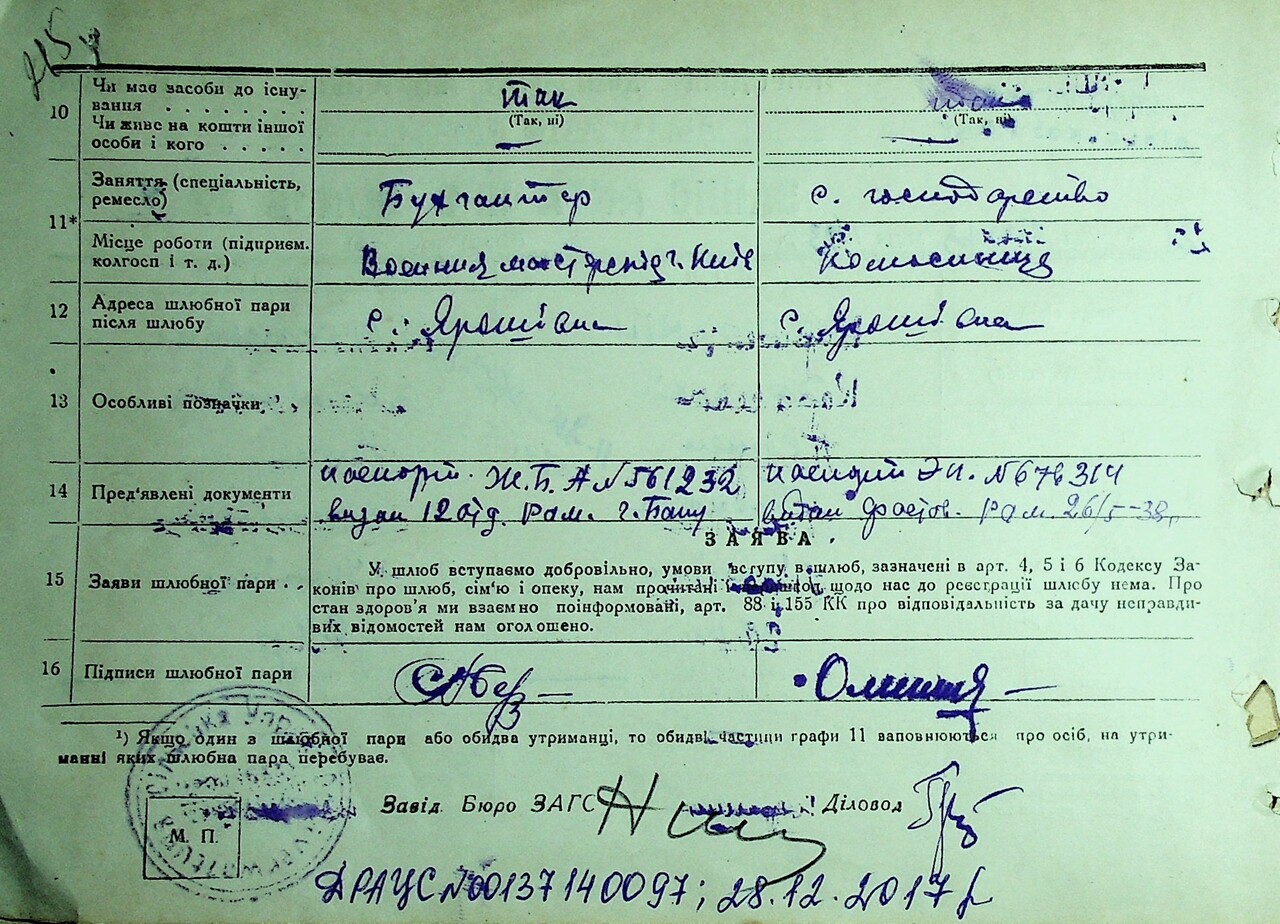 10
Чи має засоби до існу-
вання . . . . . . .
так
так
(Так, ні)
(Так, ні)
Чи живе на кошти іншої
особи і кого . . . . .
—
—
11*
Заняття (спеціальність,
ремесло)
Бухгалтер
с. господарство
Місце роботи (підприєм.
колгосп і т. д.)
г. Київ
12
Адреса шлюбної пари
після шлюбу
с.
с.
13
Особливі позначки
14
Пред'явлені документи
паспорт Ж.Б. А №561232
видан 12 отд. рам. г. Баку
паспорт №676314
видан Фастов. рам. 26/5-38
ЗАЯВА.
15
Заяви шлюбної пари . .
У шлюб вступаємо добровільно, умови вступу в шлюб, зазначені в арт. 4, 5 і 6 Кодексу За-
конів про шлюб, сім'ю і опеку, нам прочитані і щодо нас до реєстрації шлюбу нема. Про
стан здоров'я ми взаємно поінформовані, арт. 88 і 155 КК про відповідальність за дачу неправди-
вих відомостей нам оголошено.
16
Підписи шлюбної пари
¹) Якщо один з шлюбної пари або обидва утриманці, то обидві частини графи 11 заповнюються про осіб, на утри-
манні яких шлюбна пара перебуває.
Завід. Бюро ЗАГС
Діловод
М. П.
ДРАЦС №00137140097; 28.12.2017 р